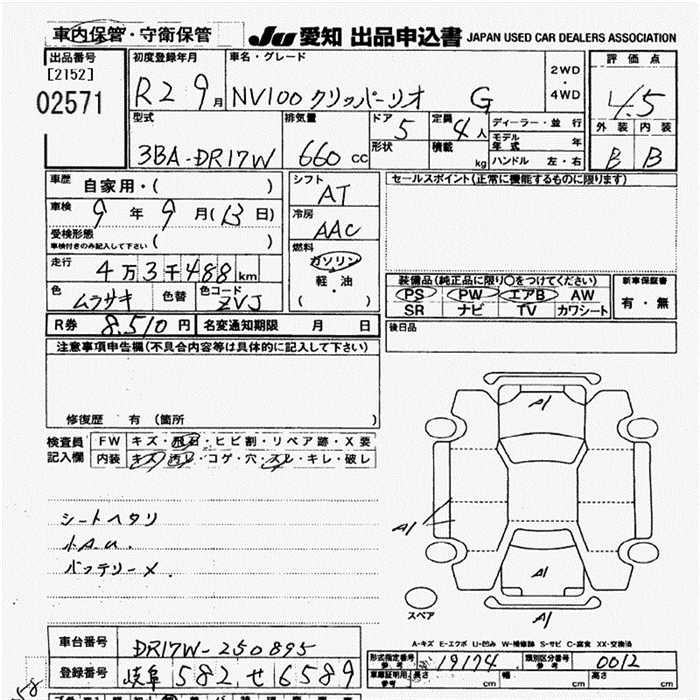 車内保管・守衛保管
JU 愛知 出品申込書 JAPAN USED CAR DEALERS ASSOCIATION
出品番号 [2152] 02571
初度登録年月 R2 9月
車名・グレード NV100 クリッパーリオ G
2WD・4WD
評価点 4.5
外装 B 内装 B
型式 3BA-DR17W
排気量 660 CC
ドア 5 形状
定員 4人 積載 kg
ディーラー・並行
モデル年式 年
ハンドル 左・右
車歴 自家用・( )
車検 9年 9月(13日)
受検形態 車検付きのみ記入して下さい ( )
走行 4万3千488 km
色 ムラサキ 色替 色コード ZVJ
R券 8,510円 名変通知期限 月 日
シフト AT
冷房 AAC
燃料 ガソリン 軽・油 ( ・ )
セールスポイント(正常に機能するものに限ります)
装備品(純正品に限り○をつけてください)
PS PW エアB AW
SR ナビ TV カワシート
新車保証書 有・無
後日品
注意事項申告欄(不具合内容等は具体的に記入して下さい)
修復歴 有(箇所 )
検査員記入欄
FW キズ・飛石・ヒビ割・リペア跡・X要
内装 キズ・汚レ・コゲ・穴・スレ・キレ・破レ
シートヘタリ
小A.U.
バッテリーメ.
A1
A1
A1
A1
スペア
A-キズ E-エクボ U-凹み W-補修跡 S-サビ C-腐食 XX-交換済
車台番号 DR17W-250895
登録番号 岐阜 582 せ 6589
形式指定番号 参考 19174 類別区分番号 参考 0012
車庫証明用 参考 長さ cm 幅 cm 高さ cm